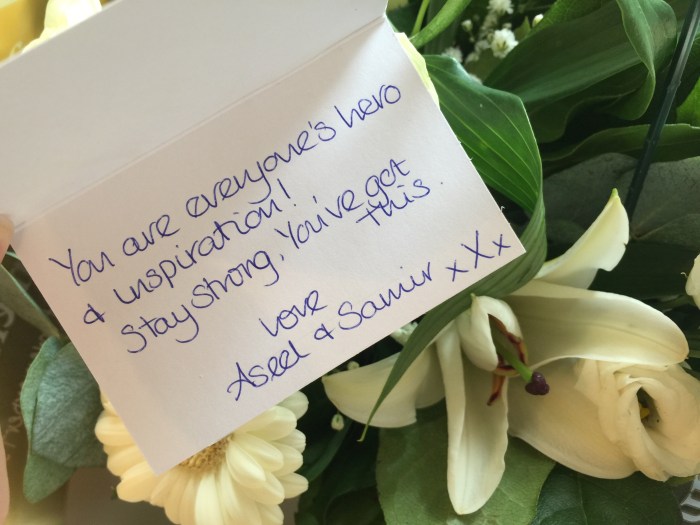 You are everyone's hero
& inspiration!
Stay strong, You've got
this.
love
Aseel & Samir xXx